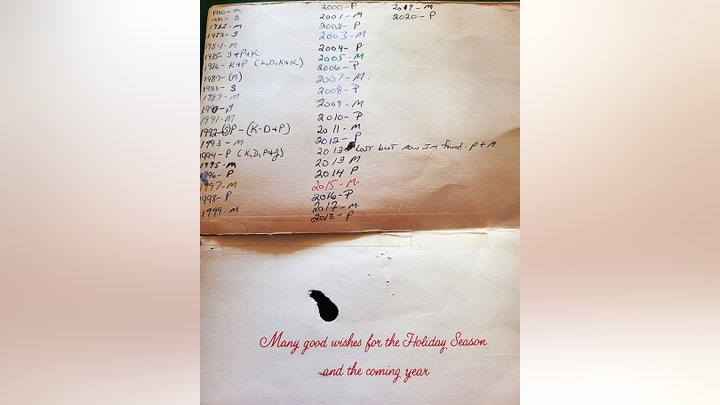 1980 - M
1981 - S
1982 - M
1983 - S
1984 - M
1985 - S+P+K
1986 - K+P (L,D,K+K)
1987 - (M)
1988 - S
1989 - M
1990 - S
1991 - M
1992 - (S)P - (K-D+P)
1993 - M
1994 - P (K,D,P+J)
1995 - M
1996 - P
1997 - M
1998 - P
1999 - M
2000 - P
2001 - M
2002 - P
2003 - M
2004 - P
2005 - M
2006 - P
2007 - M.
2008 - P
2009 - M
2010 - P
2011 - M
2012 - P
2012 Lost but now I'm found - P+M
2013 M
2014 P
2015 - M.
2016 - P
2017 - M
2018 - P
2019 - M
2020 - P
Many good wishes for the Holiday Season
and the coming year